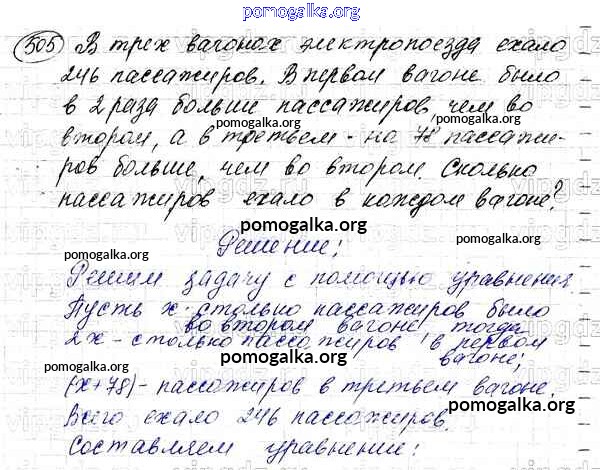 pomogalka.org
505 В трех вагонах электропоезда ехало
246 пассажиров. В первом вагоне было
в 2 раза больше пассажиров, чем во
втором, а в третьем - на 78 пассажи-
ров больше, чем во втором. Сколько
пассажиров ехало в каждом вагоне?
pomogalka.org
pomogalka.org
pomogalka.org
Решение:
Решим задачу с помощью уравнения.
Пусть x - столько пассажиров было
во втором вагоне, тогда
2x - столько пассажиров в первом
вагоне;
pomogalka.org
pomogalka.org
(x+78) - пассажиров в третьем вагоне.
Всего ехало 246 пассажиров.
pomogalka.org
Составляем уравнение: